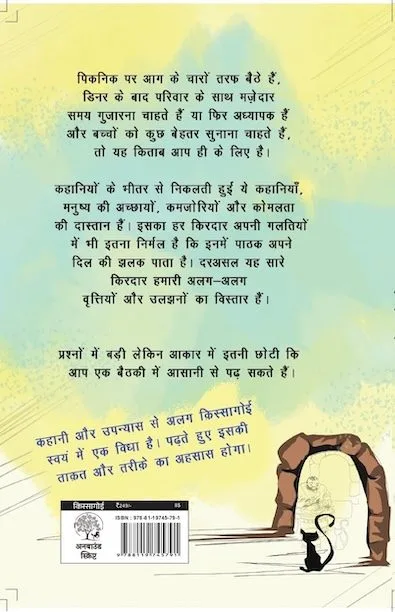 पिकनिक पर आग के चारों तरफ बैठे हैं,
डिनर के बाद परिवार के साथ मज़ेदार
समय गुजारना चाहते हैं या फिर अध्यापक हैं
और बच्चों को कुछ बेहतर सुनाना चाहते हैं,
तो यह किताब आप ही के लिए है।
कहानियों के भीतर से निकलती हुईं ये कहानियाँ,
मनुष्य की अच्छायों, कमजोरियों और कोमलता
की दास्तान हैं। इसका हर किरदार अपनी गलतियों
में भी इतना निर्मल है कि इनमें पाठक अपने
दिल की झलक पाता है। दरअसल यह सारे
किरदार हमारी अलग-अलग
वृत्तियों और उलझनों का विस्तार हैं।
प्रश्नों में बड़ी लेकिन आकार में इतनी छोटी कि
आप एक बैठकी में आसानी से पढ़ सकते हैं।
कहानी और उपन्यास से अलग किस्सागोई
स्वयं में एक विधा है। पढ़ते हुए इसकी
ताक़त और तरीके का अहसास होगा।
किस्सागोई ₹249/-
अनबाउंड
स्क्रिप्ट
ISBN: 978-81-19745-79-1
9 788119 745791